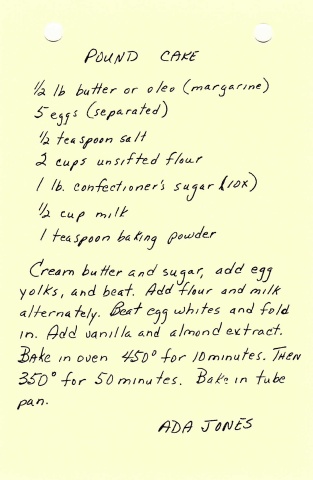 POUND CAKE
1/2 lb butter or oleo (margarine)
5 eggs (separated)
1/2 teaspoon salt
2 cups unsifted flour
1 lb. confectioner's sugar (10x)
1/2 cup milk
1 teaspoon baking powder
Cream butter and sugar, add egg
yolks, and beat. Add flour and milk
alternately. Beat egg whites and fold
in. Add vanilla and almond extract.
Bake in oven 450° for 10 minutes. Then
350° for 50 minutes. Bake in tube
pan.
ADA JONES